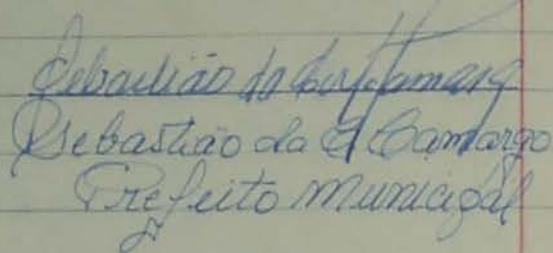 Sebastião da Camargo
Sebastião da C Camargo
Prefeito Municipal